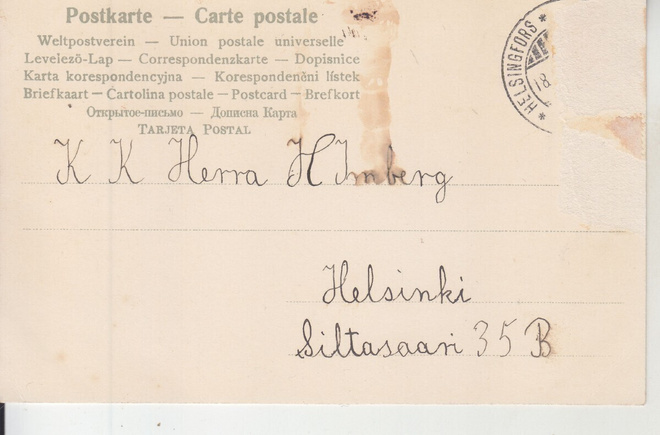 Postkarte — Carte postale
Weltpostverein — Union postale universelle
Levelezö-Lap — Correspondenzkarte — Dopisnice
Karta korespondencyjna — Korespondenčni lístek
Briefkaart — Cartolina postale — Postcard — Brefkort
Открытое-письмо — Дописна Карта
Tarjeta Postal
* HELSINGFORS *
K K Herra H Imberg
Helsinki
Siltasaari 35 B